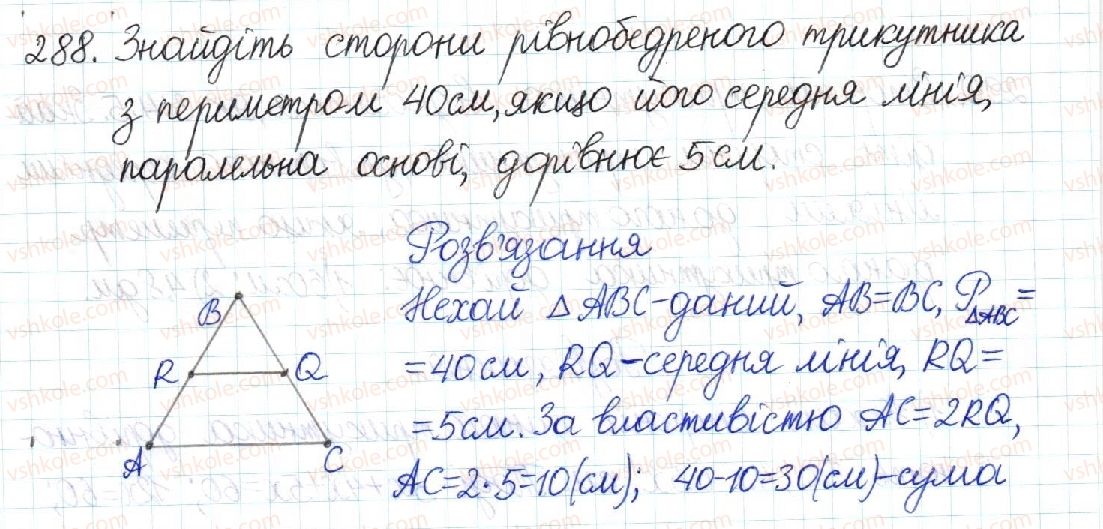 288. Знайдіть сторони рівнобедреного трикутника
з периметром 40см, якщо його середня лінія,
паралельна основі, дорівнює 5см.
Розв'язання
Нехай △ABC-даний, AB=BC, P△ABC=
=40см, RQ-середня лінія, RQ=
=5см. За властивістю AC=2RQ,
AC=2·5=10(см); 40-10=30(см)-сума
B
R Q
A C